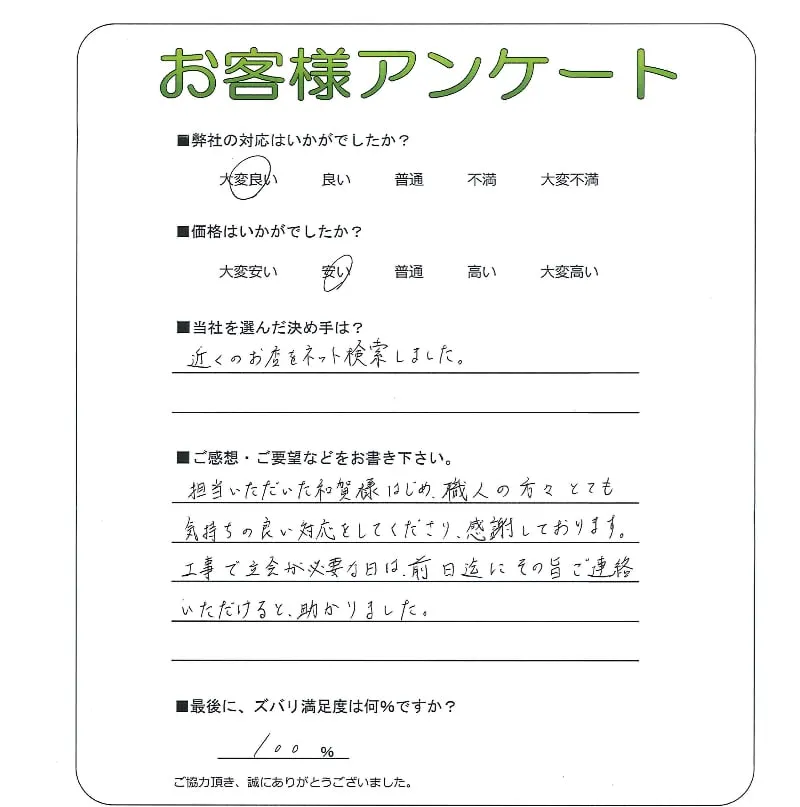 お客様アンケート
■弊社の対応はいかがでしたか？
大変良い 良い 普通 不満 大変不満
■価格はいかがでしたか？
大変安い 安い 普通 高い 大変高い
■当社を選んだ決め手は？
近くのお店をネット検索しました。
■ご感想・ご要望などをお書き下さい。
担当いただいた和賀様はじめ、職人の方々とても
気持ちの良い対応をしてくださり、感謝しております。
工事で立会が必要な日は、前日迄にその旨ご連絡
いただけると、助かりました。
■最後に、ズバリ満足度は何％ですか？
100 ％
ご協力頂き、誠にありがとうございました。